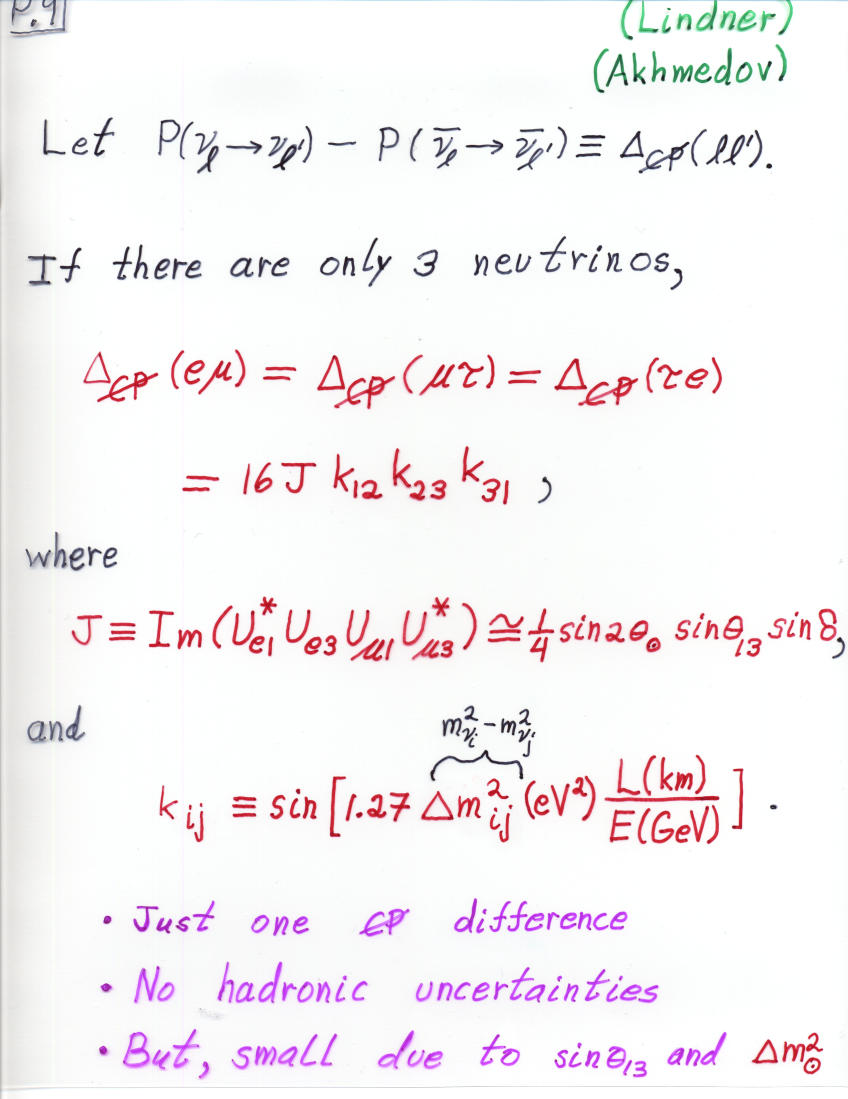 P.91
(Lindner)
(Akhmedov)
Let P(ν_ℓ → ν_ℓ') − P(ν̄_ℓ → ν̄_ℓ') ≡ Δ_C̸P̸(ℓℓ').
If there are only 3 neutrinos,
Δ_C̸P̸(eμ) = Δ_C̸P̸(μτ) = Δ_C̸P̸(τe)
= 16 J k₁₂ k₂₃ k₃₁ ,
where
J ≡ Im(U*_e1 U_e3 U_μ1 U*_μ3) ≅ ¼ sin2θ_⊙ sinθ₁₃ sinδ,
and
m²_νi − m²_νj
k_ij ≡ sin[1.27 Δm²_ij (eV²) L(km)/E(GeV)] .
• Just one C̸P̸ difference
• No hadronic uncertainties
• But, small due to sinθ₁₃ and Δm²_⊙